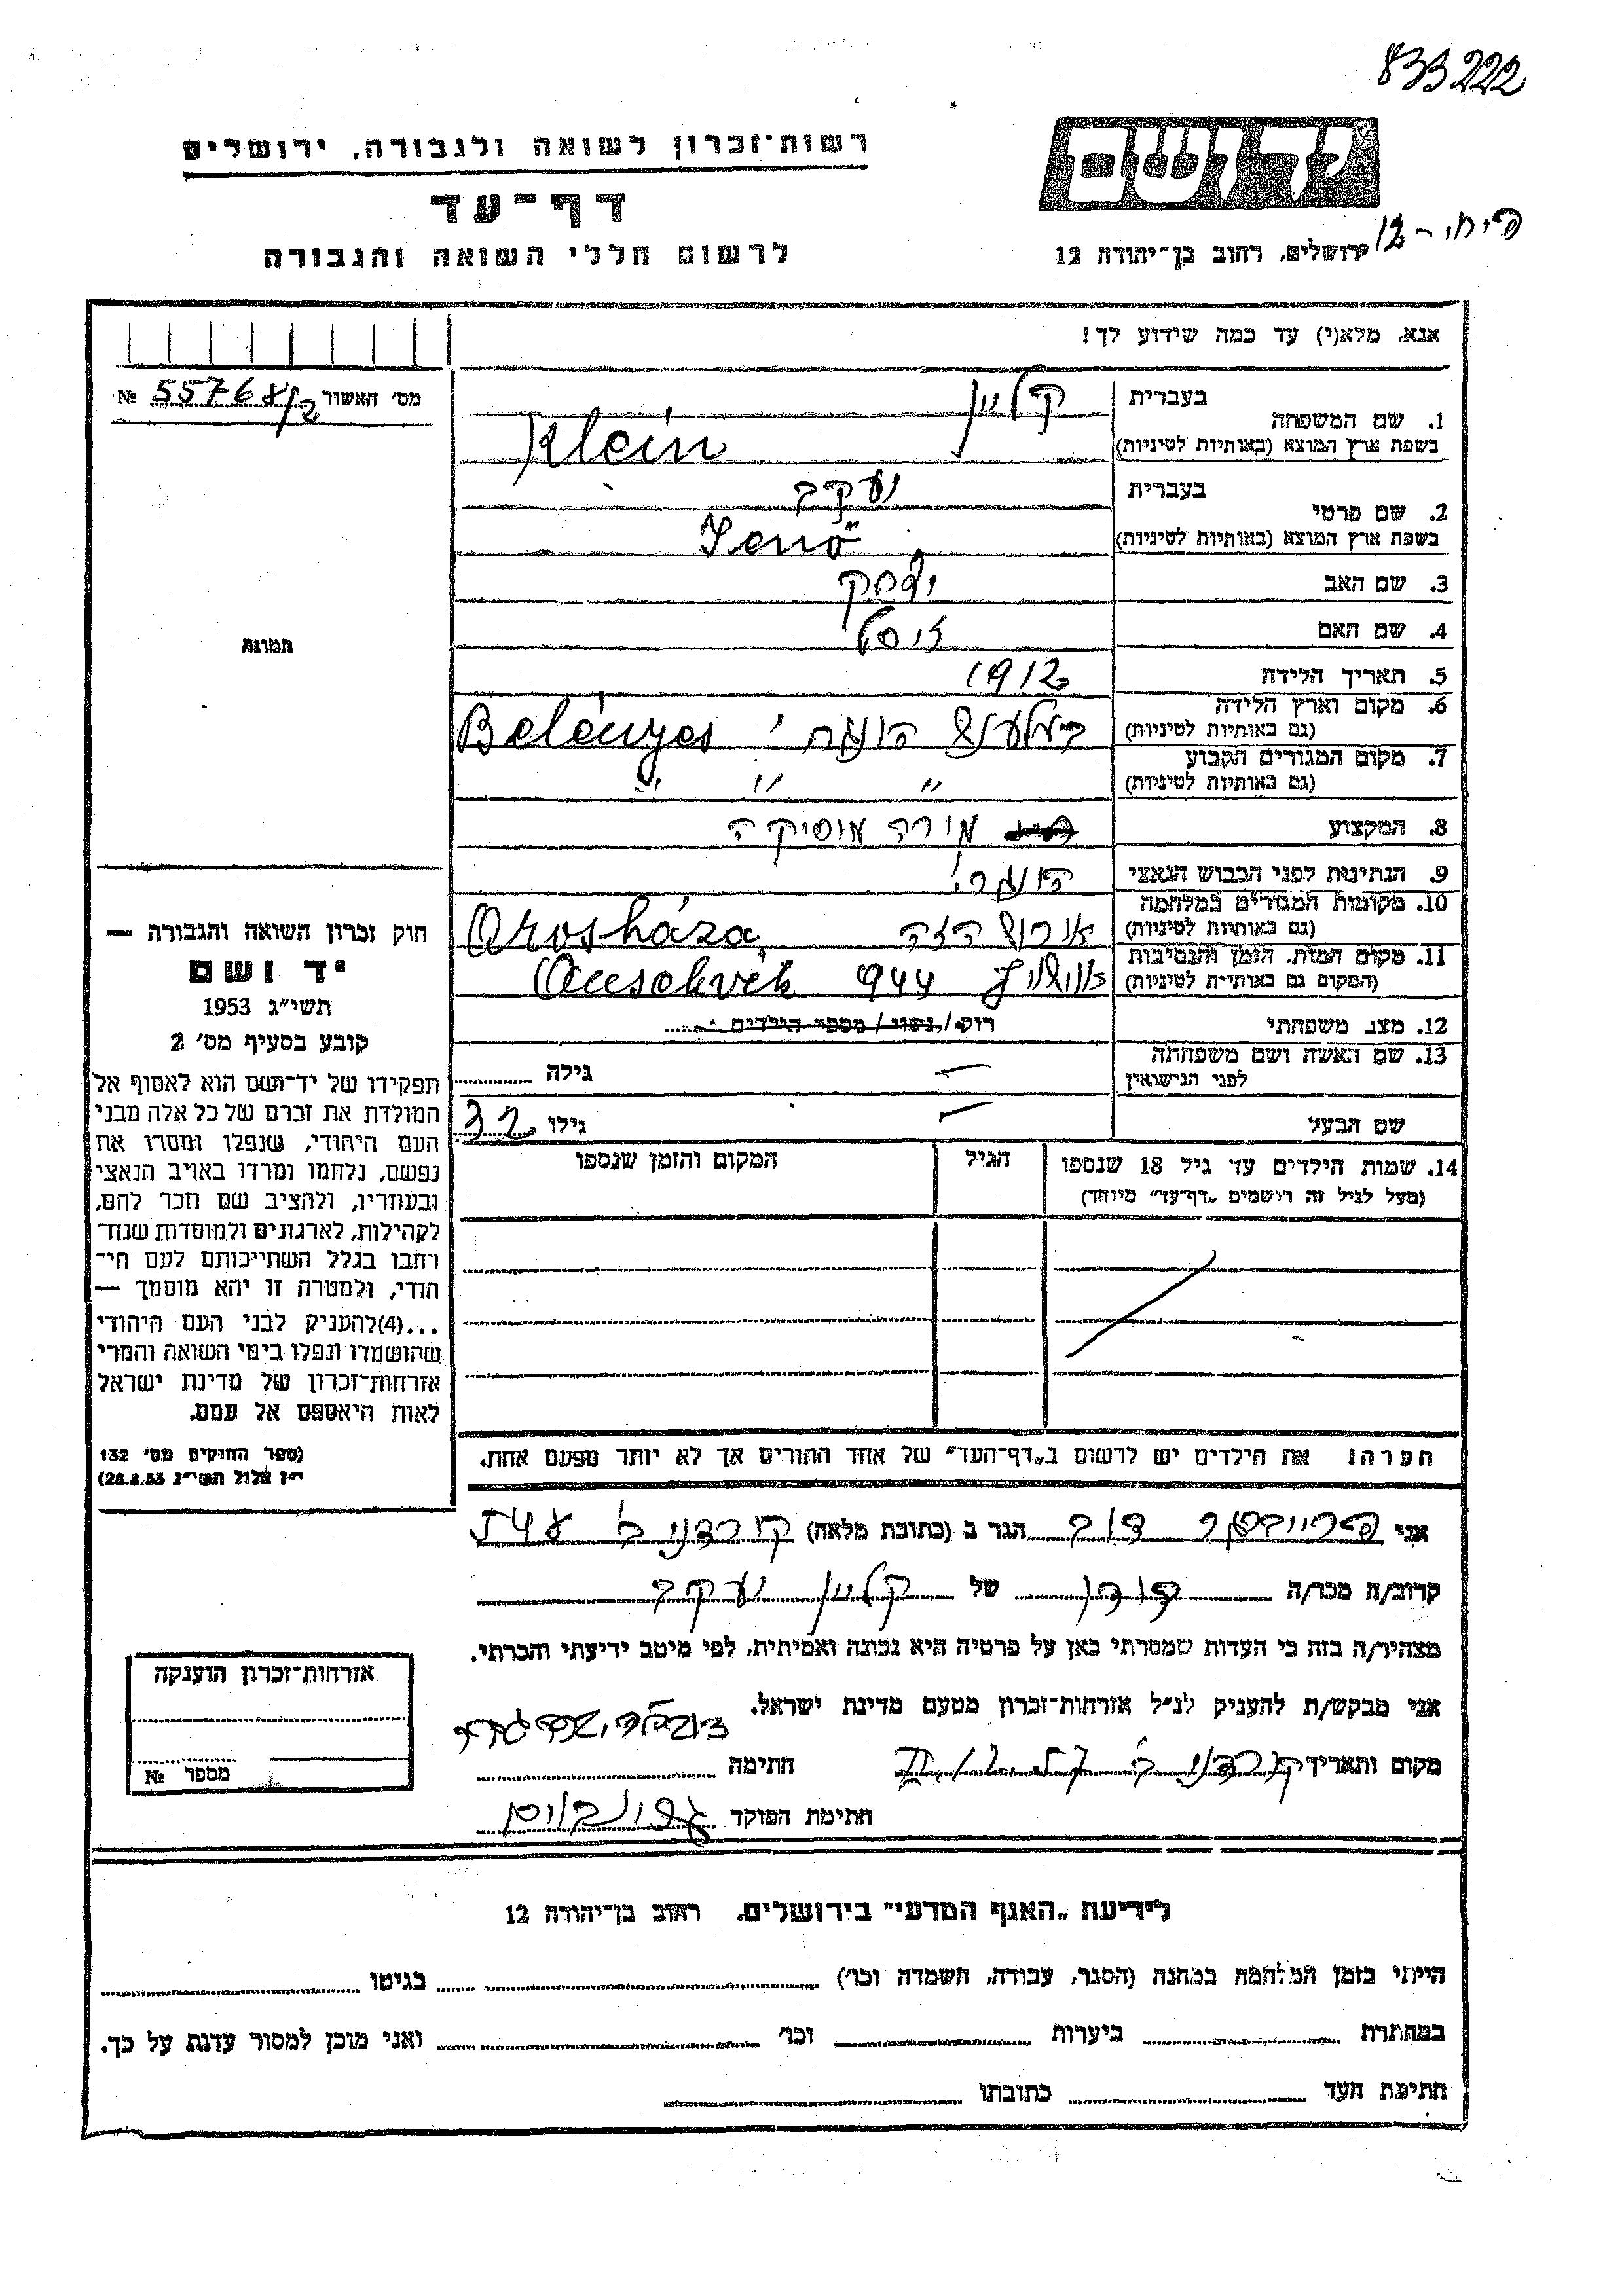 833222
רשות־זכרון לשואה ולגבורה, ירושלים
דף־עד
לרשום חללי השואה והגבורה
יד ושם
ירושלים, רחוב בן־יהודה 12
אנא, מלא(י) עד כמה שידוע לך!
מס׳ האשור 55768/2 №
1. שם המשפחה בעברית קליין
בשפת ארץ המוצא (באותיות לטיניות) Klein
2. שם פרטי בעברית יעקב
בשפת ארץ המוצא (באותיות לטיניות) Jenő
3. שם האב יצחק
4. שם האם
תמונה
5. תאריך הלידה 1912
6. מקום וארץ הלידה
(גם באותיות לטיניות) Belényes
7. מקום המגורים הקבוע
(גם באותיות לטיניות) " " "
8. המקצוע מורה מוסיקה
9. הנתינות לפני הכבוש הנאצי הונגרי
10. מקומות המגורים במלחמה
(גם באותיות לטיניות) אורושהזה Orosháza
11. מקום המות, הזמן והנסיבות
(המקום גם באותיות לטיניות) אושוויץ 944 Auschvitz
12. מצב משפחתי רוק / נשוי / מספר הילדים
13. שם האשה ושם משפחתה
לפני הנישואין — גילה
שם הבעל — גילו 32
14. שמות הילדים עד גיל 18 שנספו הגיל המקום והזמן שנספו
(מעל לגיל זה רושמים „דף־עד” מיוחד)
חוק זכרון השואה והגבורה —
יד ושם
תשי״ג 1953
קובע בסעיף מס׳ 2
תפקידו של יד־ושם הוא לאסוף אל
המולדת את זכרם של כל אלה מבני
העם היהודי, שנפלו ומסרו את
נפשם, נלחמו ומרדו באויב הנאצי
ובעוזריו, ולהציב שם וזכר להם,
לקהילות, לארגונים ולמוסדות שנח־
רבו בגלל השתייכותם לעם הי־
הודי, ולמטרה זו יהא מוסמך —
...(4)להעניק לבני העם היהודי
שהושמדו ונפלו בימי השואה והמרי
אזרחות־זכרון של מדינת ישראל
לאות היאספם אל עמם.
(ספר החוקים מס׳ 132
י״ז אלול תשי״ג 28.8.53)
הערה! את הילדים יש לרשום ב„דף־העד” של אחד ההורים אך לא יותר מפעם אחת.
אני דוב הגר ב (כתובת מלאה) קורדני ב
קרוב/ה מכר/ה בן דוד של קליין יעקב
מצהיר/ה בזה כי העדות שמסרתי כאן על פרטיה היא נכונה ואמיתית, לפי מיטב ידיעתי והכרתי.
אני מבקש/ת להעניק לנ״ל אזרחות־זכרון מטעם מדינת ישראל.
מקום ותאריך קורדני ב חתימה
חתימת הפוקד
אזרחות־זכרון הוענקה
מספר №
לידיעת „האגף המדעי” בירושלים, רחוב בן־יהודה 12
הייתי בזמן המלחמה במחנה (הסגר, עבודה, השמדה וכו׳) בגיטו
במחתרת ביערות וכו׳ ואני מוכן למסור עדות על כך.
חתימת העד כתובתו